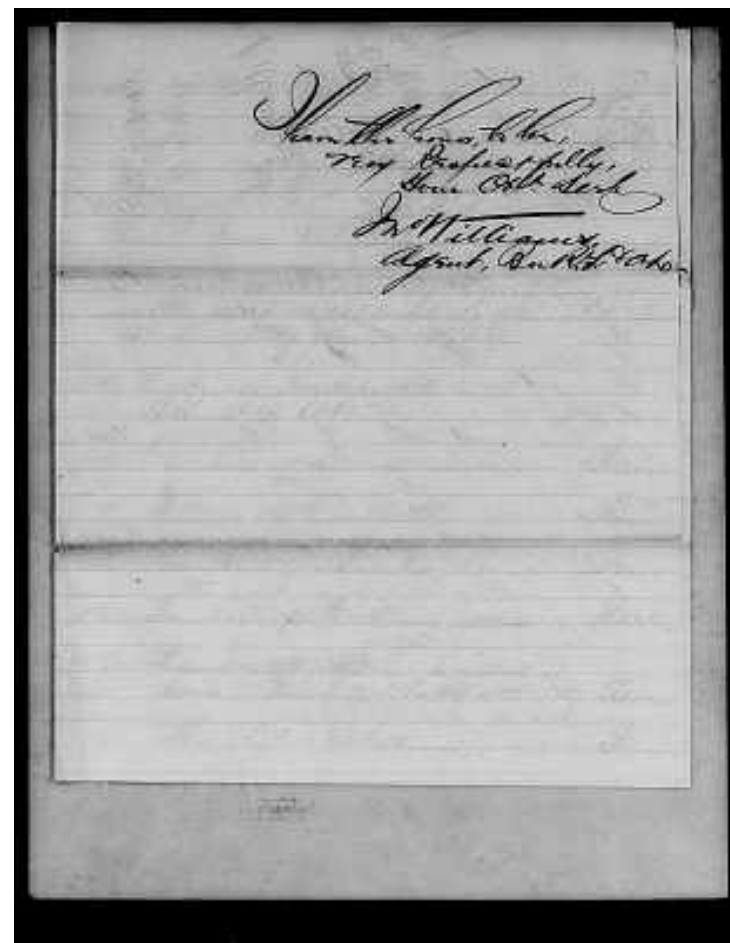 I have the honor, to be,
Very Respectfully,
Your Obt. Servt
Jno Williams,
Agent, Bu. R. F. &